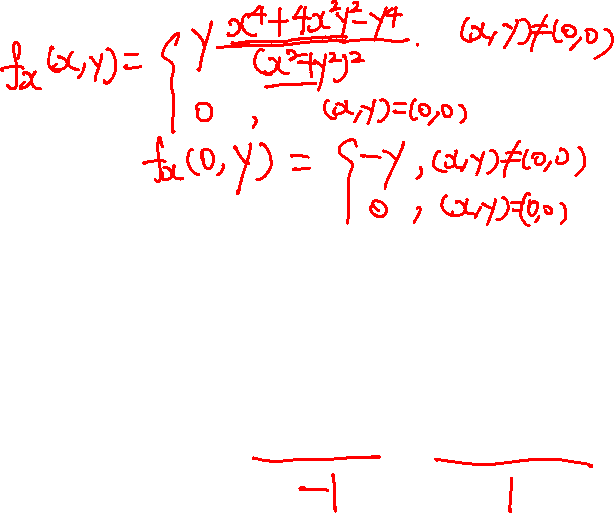 fx(x,y) = { y (x⁴+4x²y²-y⁴)/(x²+y²)². (x,y)≠(0,0)
0, (x,y)=(0,0)
fx(0,y) = { -y, (x,y)≠(0,0)
0, (x,y)=(0,0)
-1 1